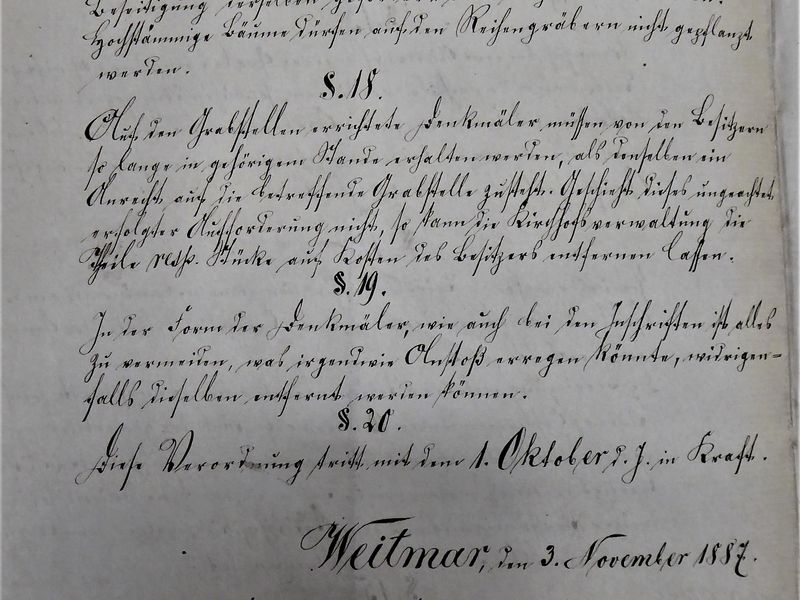 Beseitigung derselben
Hochstämmige Bäume dürfen auf den Reihengräbern nicht gepflanzt
werden.
§. 18.
Auf den Grabstellen errichtete Denkmäler müssen von den Besitzern
so lange in gehörigem Stande erhalten werden, als denselben ein
Anrecht auf die betreffende Grabstelle zusteht. Geschieht dieses ungeachtet
erfolgter Aufforderung nicht, so kann die Kirchhofsverwaltung die
Theile resp. Stücke auf Kosten des Besitzers entfernen lassen.
§. 19.
In der Form der Denkmäler, wie auch bei den Inschriften ist alles
zu vermeiden, was irgendwie Anstoß erregen könnte, widrigen=
falls dieselben entfernt werden können.
§. 20.
Diese Verordnung tritt mit dem 1. Oktober d. J. in Kraft.
Weitmar, den 3. November 1887.